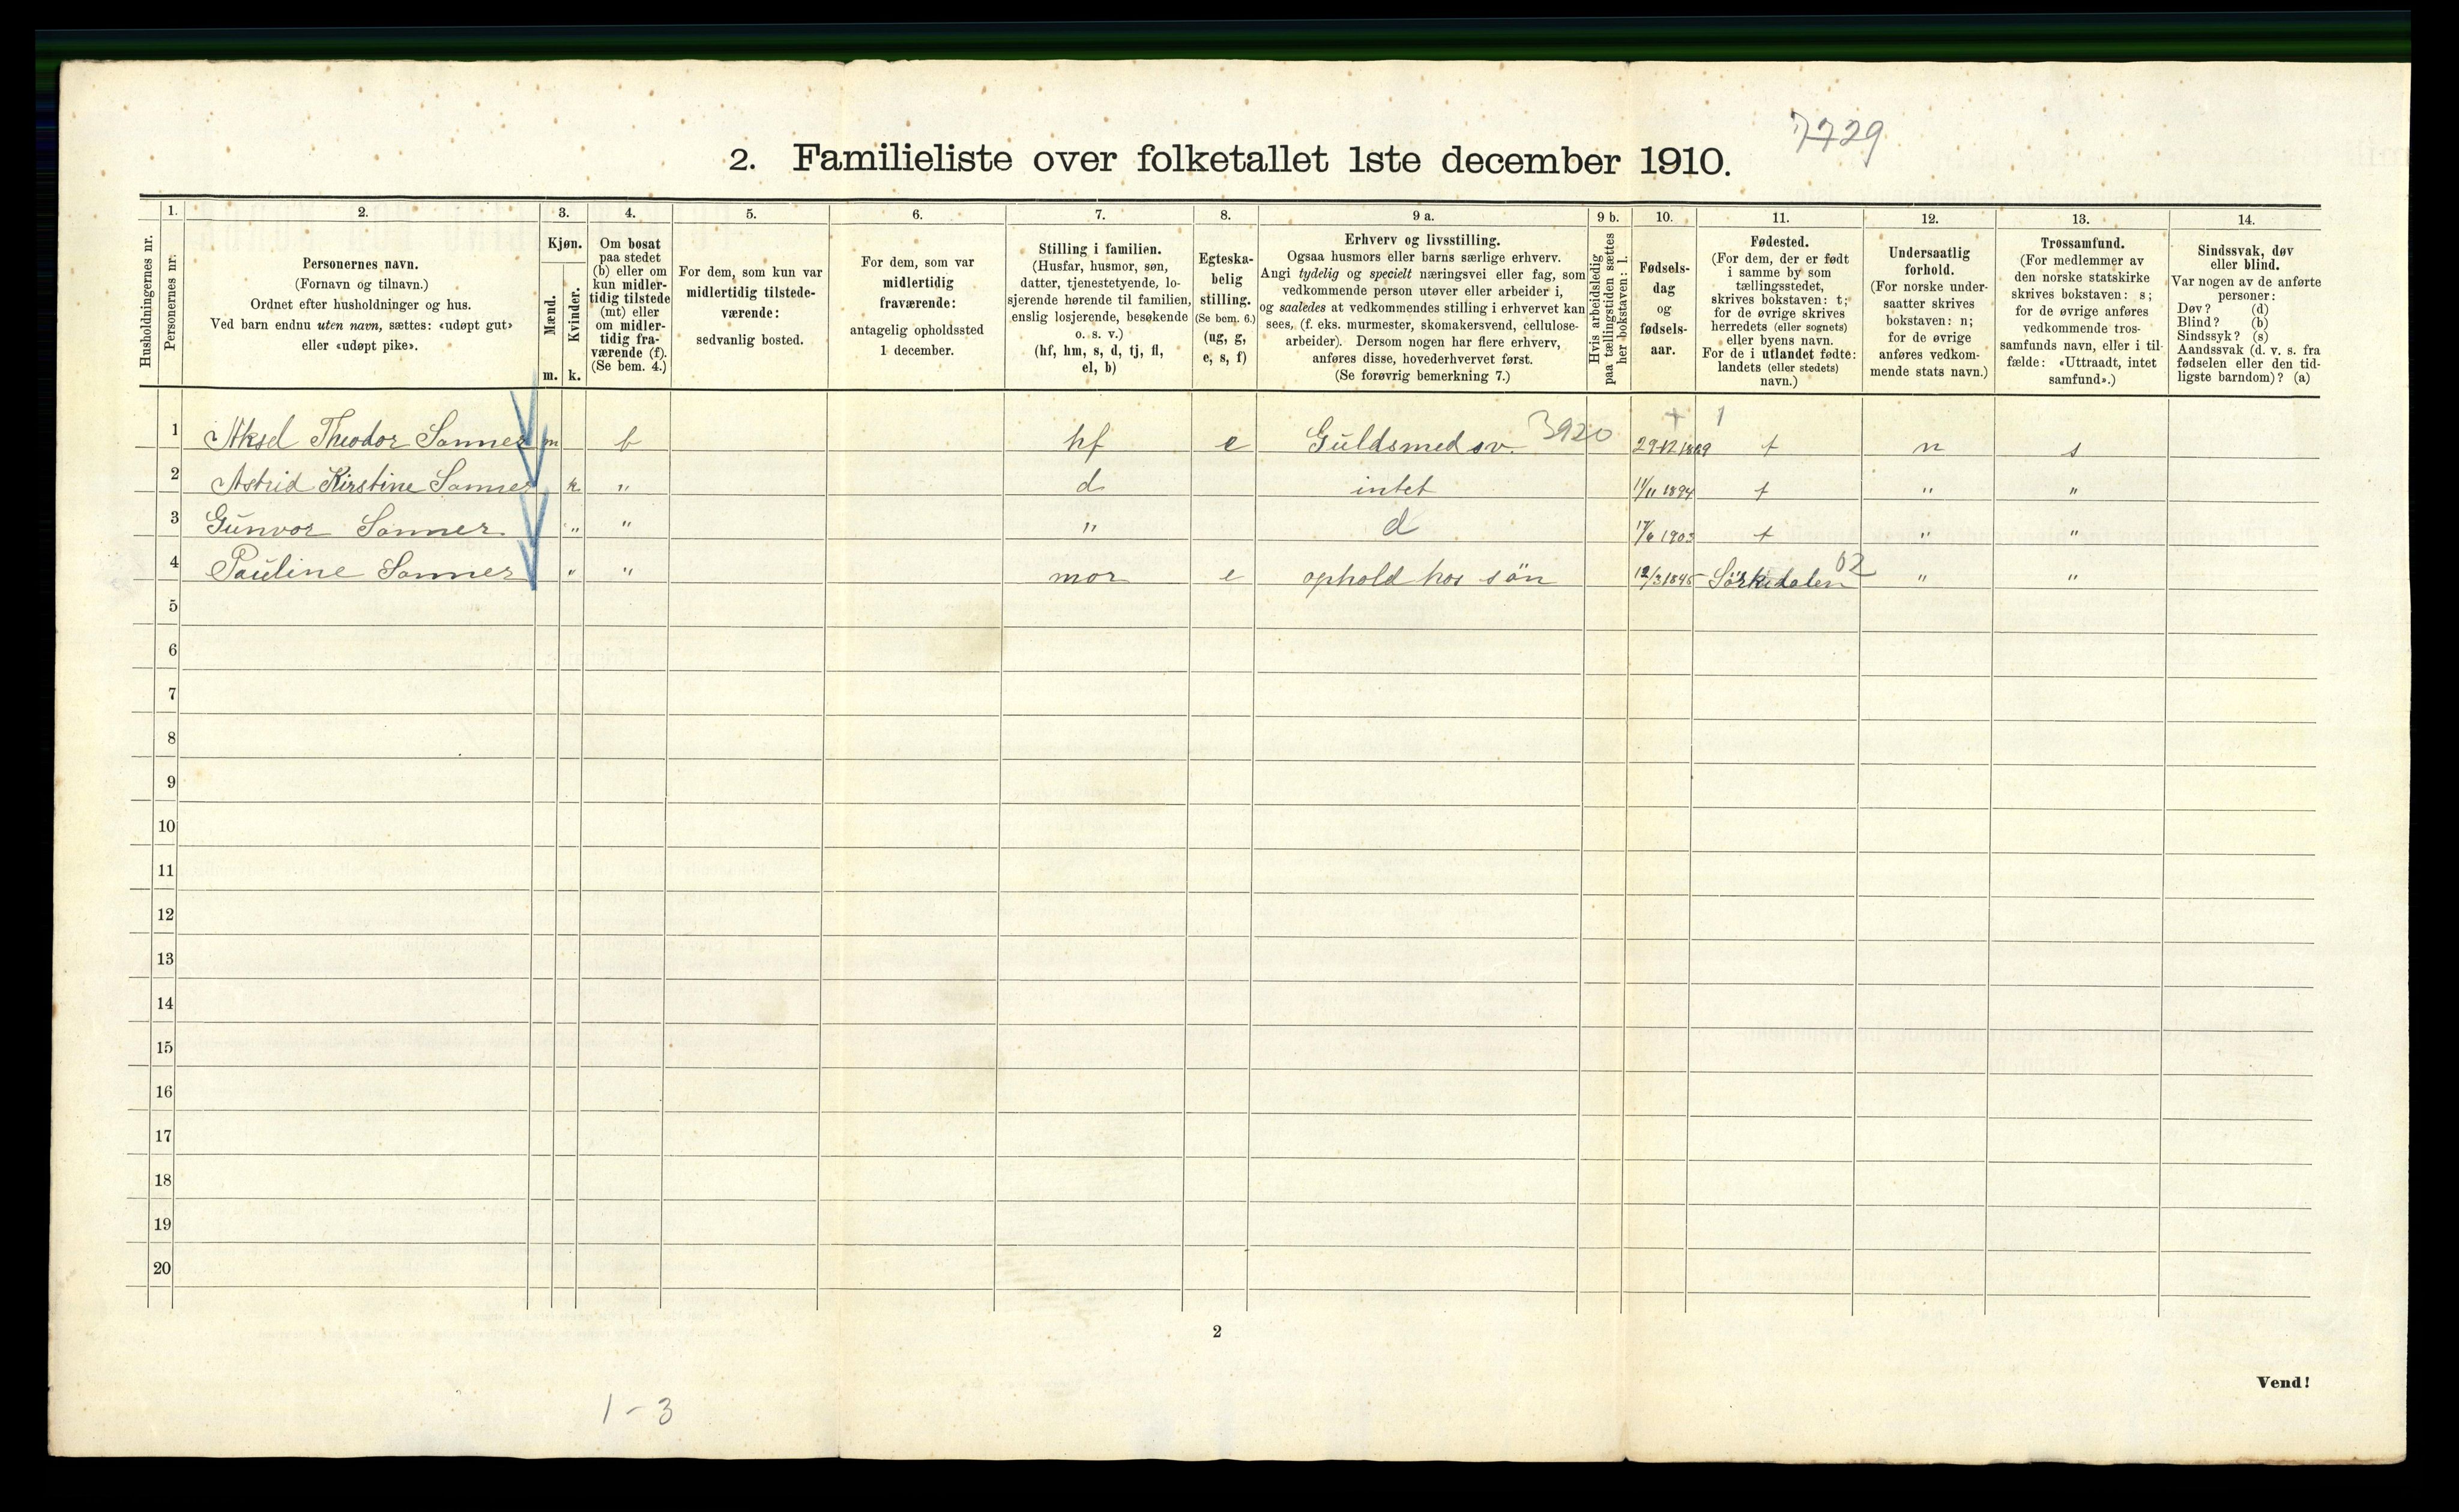 7729
2. Familieliste over folketallet 1ste december 1910.
Husholdningernes nr.
1. Personernes nr.
2. Personernes navn.
(Fornavn og tilnavn.)
Ordnet efter husholdninger og hus.
Ved barn endnu uten navn, sættes: «udøpt gut»
eller «udøpt pike».
3. Kjøn.
Mænd. m.
Kvinder. k.
4. Om bosat
paa stedet
(b) eller om
kun midler-
tidig tilstede
(mt) eller
om midler-
tidig fra-
værende (f).
(Se bem. 4.)
5. For dem, som kun var
midlertidig tilstede-
værende:
sedvanlig bosted.
6. For dem, som var
midlertidig
fraværende:
antagelig opholdssted
1 december.
7. Stilling i familien.
(Husfar, husmor, søn,
datter, tjenestetyende, lo-
sjerende hørende til familien,
enslig losjerende, besøkende
o. s. v.)
(hf, hm, s, d, tj, fl,
el, b)
8. Egteska-
belig
stilling.
(Se bem. 6.)
(ug, g,
e, s, f)
9 a. Erhverv og livsstilling.
Ogsaa husmors eller barns særlige erhverv.
Angi tydelig og specielt næringsvei eller fag, som
vedkommende person utøver eller arbeider i,
og saaledes at vedkommendes stilling i erhvervet kan
sees, (f. eks. murmester, skomakersvend, cellulose-
arbeider). Dersom nogen har flere erhverv,
anføres disse, hovederhvervet først.
(Se forøvrig bemerkning 7.)
9 b. Hvis arbeidsledig
paa tællingstiden sættes
her bokstaven: l.
10. Fødsels-
dag
og
fødsels-
aar.
11. Fødested.
(For dem, der er født
i samme by som
tællingsstedet,
skrives bokstaven: t;
for de øvrige skrives
herredets (eller sognets)
eller byens navn.
For de i utlandet fødte:
landets (eller stedets)
navn.)
12. Undersaatlig
forhold.
(For norske under-
saatter skrives
bokstaven: n;
for de øvrige
anføres vedkom-
mende stats navn.)
13. Trossamfund.
(For medlemmer av
den norske statskirke
skrives bokstaven: s;
for de øvrige anføres
vedkommende tros-
samfunds navn, eller i til-
fælde: «Uttraadt, intet
samfund».)
14. Sindssvak, døv
eller blind.
Var nogen av de anførte
personer:
Døv? (d)
Blind? (b)
Sindssyk? (s)
Aandssvak (d. v. s. fra
fødselen eller den tid-
ligste barndom)? (a)
1 Aksel Theodor Sanner m b hf e Guldsmedsv. 3920 + 1 t n s
2 Astrid Kirstine Sanner k " d intet 11/11 1894 t " "
3 Gunvor Sanner " " " d 17/6 1903 t " "
4 Pauline Sanner " " mor e ophold hos sön 12/3 1845 Sörkedalen 02 " "
5
6
7
8
9
10
11
12
13
14
15
16
17
18
19
20
2
Vend!
1-3